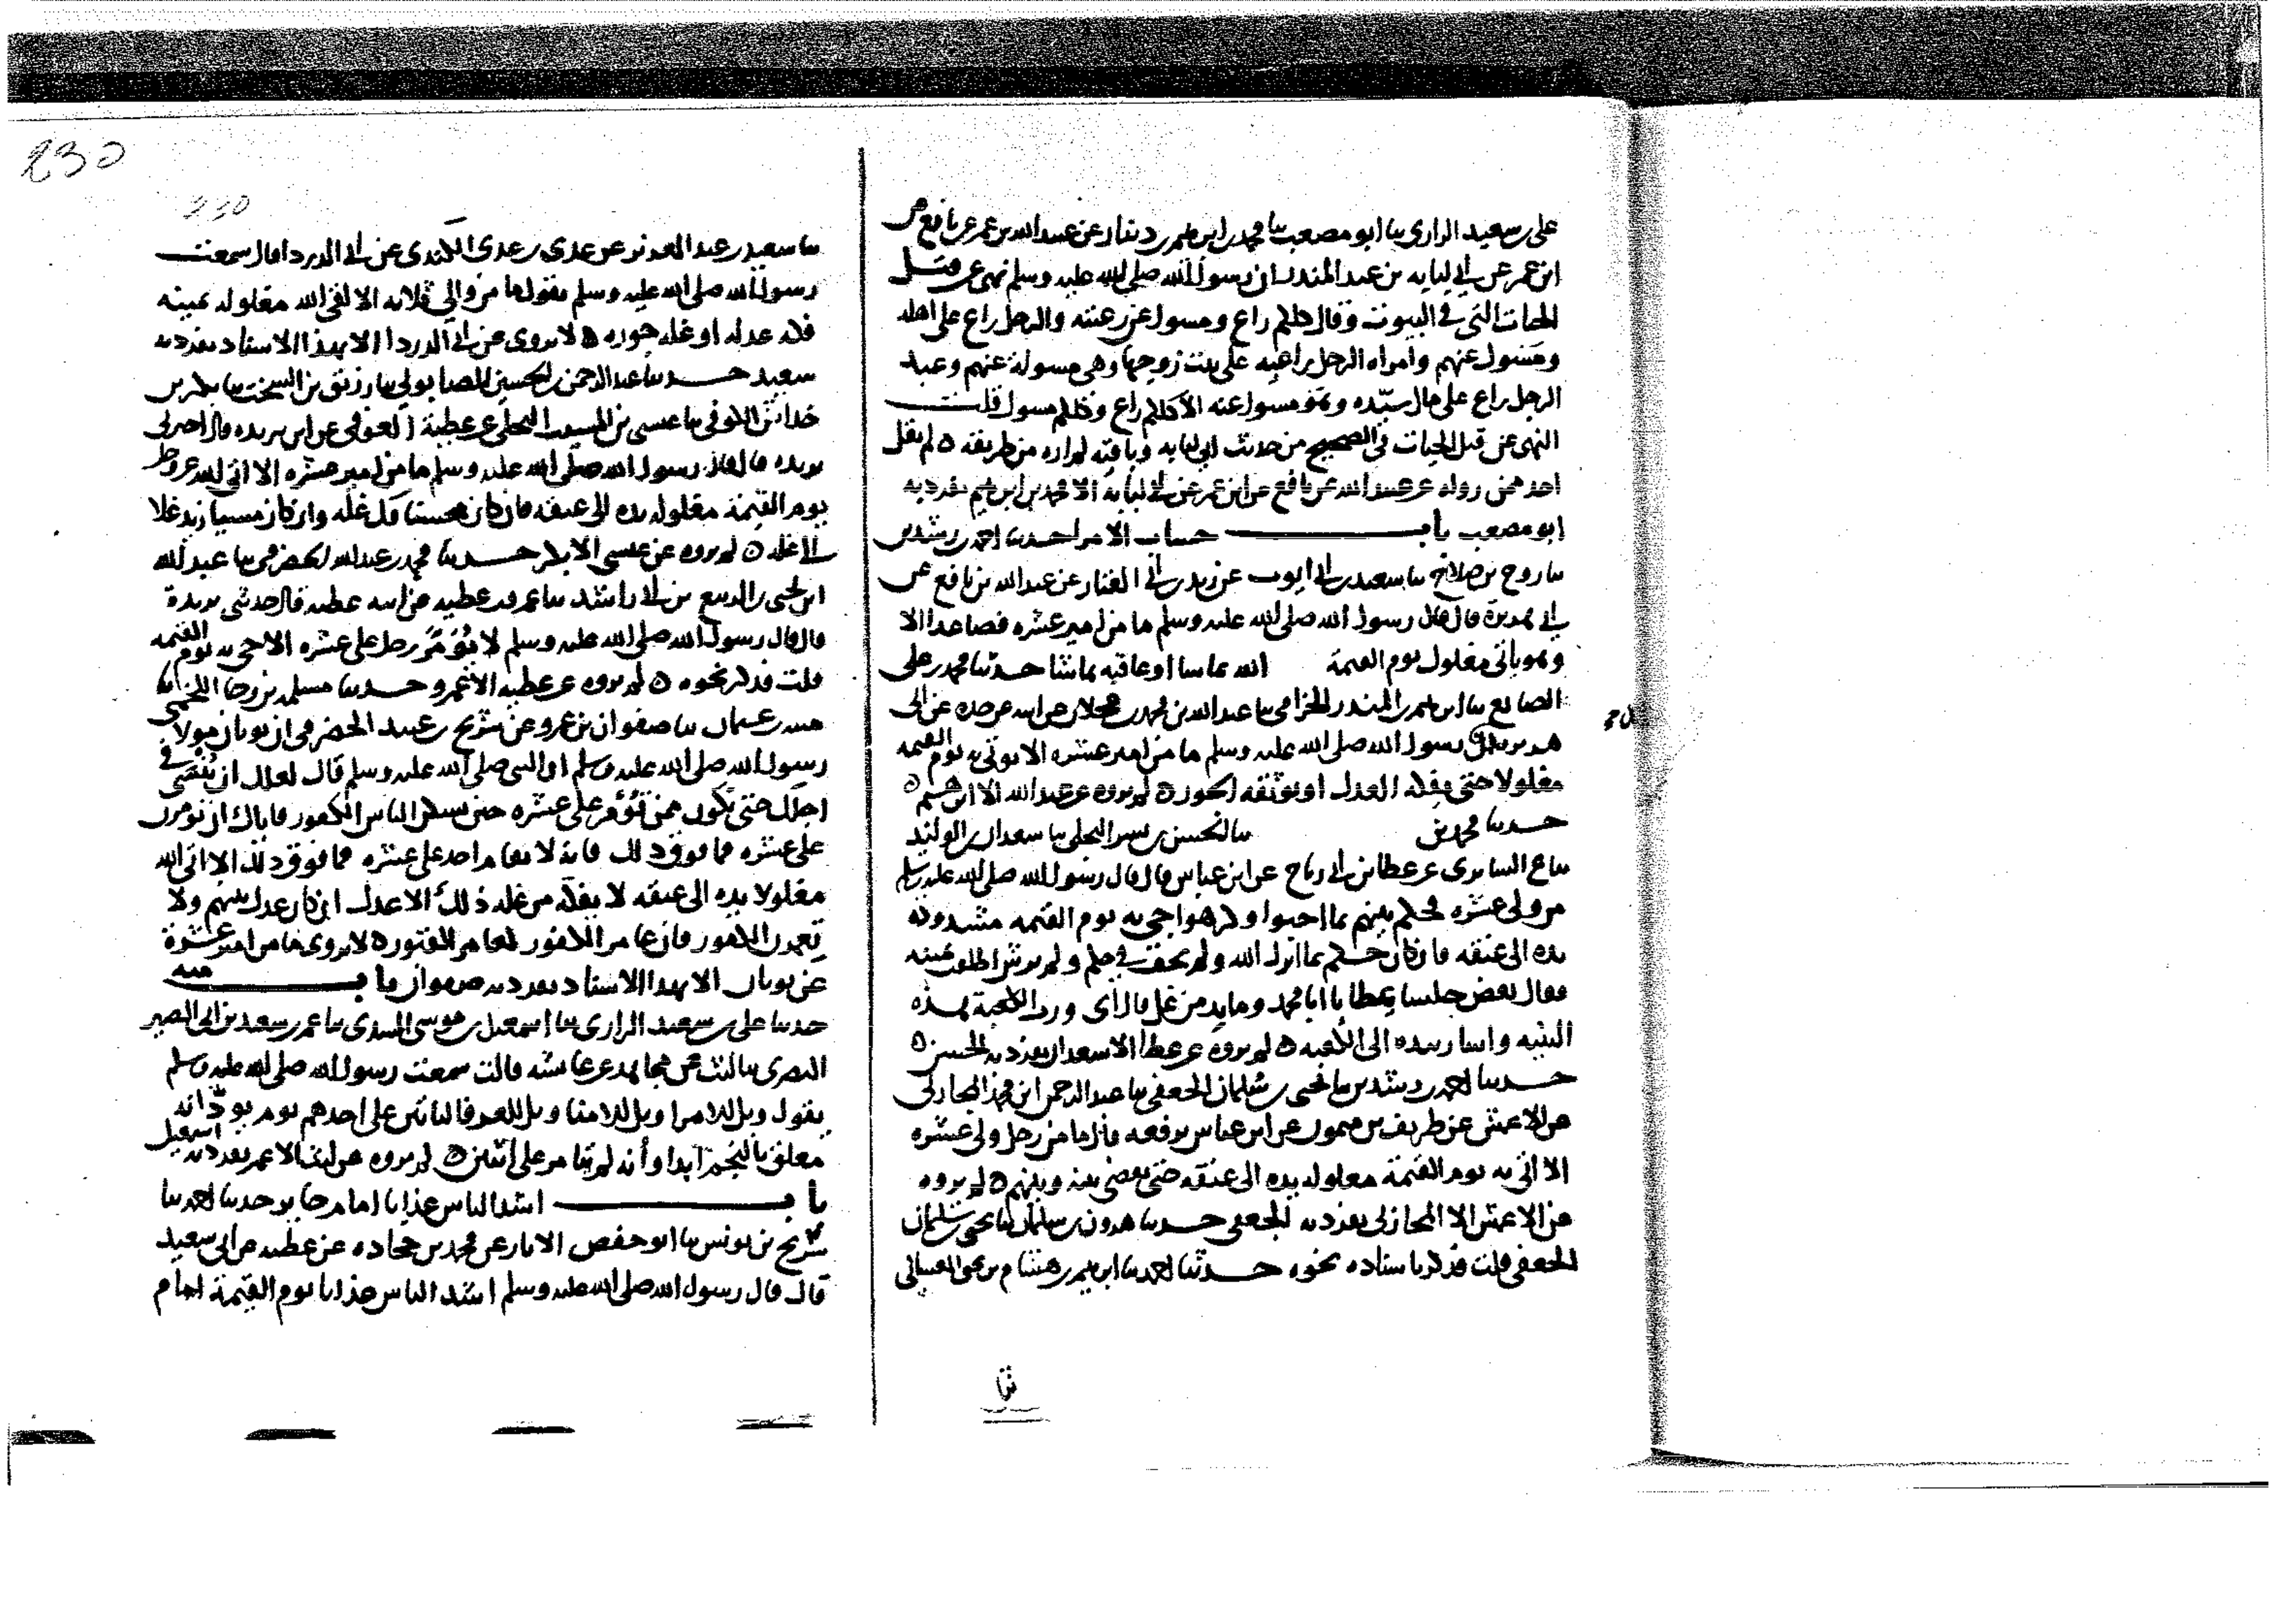 علي بن سعيد الرازي ثنا ابو مصعب ثنا محمد بن ابرهيم بن دينار عن عبيد الله بن عمر عن نافع عن
ابن عمر عن ابي لبابه بن عبد المنذر ان رسول الله صلى الله عليه وسلم نهى عن قتل
الحيات التي في البيوت وقال كلكم راع ومسول عن رعيته والرجل راع على اهله
ومسول عنهم وامراه الرجل راعيه على بيت زوجها وهي مسولة عنهم وعبد
الرجل راع على مال سيده وهو مسول عنه الا كلكم راع وكلكم مسول قلت
النهي عن قتل الحيات في الصحيح من حديث ابي لبابه وباقيه لم اره من طريقه ه لم يقل
احد ممن رواه عن عبيد الله عن نافع عن ابن عمر عن ابي لبابة الا محمد بن ابرهيم تفرد به
ابو مصعب باب حساب الامرا حدثنا احمد بن رشدين
ثنا روح بن صلاح ثنا سعيد بن ابي ايوب عن زيد بن ابي العتاب عن عبد الله بن نافع عن
ابي هريرة قال قال رسول الله صلى الله عليه وسلم ما من امير عشره فصاعدا الا
وهو ياتي مغلول يوم القيمة الله بما سا او عاقبه بما شا حدثنا محمد بن علي
الصايغ ثنا ابرهيم بن المنذر الحزامي ثنا عبد الله بن محمد بن عجلان عن ابيه عن جده عن ابي
هريرة قال رسول الله صلى الله عليه وسلم ما من امير عشره الا يوتى به يوم القيمه
مغلولا حتى يفكه العدل او يوثقه الجور ه لم يروه عن عبد الله الا ابرهيم ه
حدثنا محمد بن ثنا الحسن بن بسر البجلي ثنا سعدان بن الوليد
بياع السابري عن عطا بن ابي رباح عن ابن عباس قال قال رسول الله صلى الله عليه وسلم
من ولي عشره فحكم بينهم بما احبوا او كرهوا جي به يوم القيمه مشدوده
يده الى عنقه فان كان حكم بما انزل الله ولم يحف في حكم ولم يرتش اطلقت يمينه
فقال بعض جلسا عطا يا ابا محمد وما بد من غل قال اي ورب الكعبة بهذه
البنيه واشار بيده الى الكعبه ه لم يروه عن عطا الا سعدان تفرد به الحسن ه
حدثنا احمد بن رشدين ثنا يحيى بن سليمان الجعفي ثنا عبد الرحمن ابن محمد المحاربي
عن الاعمش عن طريف بن ميمون عن ابن عباس يرفعه قال ما من رجل ولي عشره
الا اتي به يوم القيمة مغلوله يده الى عنقه حتى يقضى بينه وبينهم ه لم يروه
عن الاعمش الا المحاربي تفرد به الجعفي حدثنا هرون بن سليمان ثنا يحيى بن سليمان
الجعفي قلت فذكر باسناده نحوه حدثنا احمد ثنا ابرهيم بن هشام بن يحيى الغساني
ثنا سعيد بن عبد العزيز عن عدي بن عدي الكندي عن ابي الدردا قال سمعت
رسول الله صلى الله عليه وسلم يقول ما من والي ثلاثه الا لقي الله مغلوله يمينه
فكه عدله او غله جوره ه لا يروى عن ابي الدردا الا بهذا الاسناد تفرد به
سعيد حدثنا عبد الرحمن بن الحسين الصابوني ثنا رزيق بن السخت ثنا بكر بن
خداش الكوفي ثنا عيسى بن المسيب البجلي عن عطية العوفي عن ابن بريده قال اخبرني
بريده قال قال رسول الله صلى الله عليه وسلم ما من امير عشره الا اتى الله عز وجل
يوم القيمة مغلوله يده الى عنقه فان كان محسنا فك غله وان كان مسيا زيد غلا
الى غله ه لم يروه عن عيسى الا بكر حدثنا محمد بن عبد الله الحضرمي ثنا عبد الله
ابن يحيى بن الربيع بن ابي راشد ثنا عمرو بن عطيه عن ابيه عطيه قال حدثني بريدة
قال قال رسول الله صلى الله عليه وسلم لا يؤمر رجل على عشره الا جي به يوم القيمه
قلت فذكر نحوه ه لم يروه عن عطيه الا عمرو حدثنا مسلمه بن رجا اللخمي ثنا
عثمان ثنا صفوان بن عمرو عن شريح بن عبيد الحضرمي ان ثوبان مولى
رسول الله صلى الله عليه وسلم ان النبي صلى الله عليه وسلم قال لعلك ان يُنسى في
اجلك حتى تكون ممن تؤمر على عشره حتى الناس الكفور فاياك ان تومرن
على عشره فما فوق ذلك فانه لا يقام احد على عشره فما فوق ذلك الا اتى الله
مغلولا يده الى عنقه لا يفكه من غله ذلك الا عدل ان كان عدل بينهم ولا
تعمرن الكفور فان عامر الكفور كعامر القبور ه لا يروى ما من امير عشرة
عن ثوبان الا بهذا الاسناد تفرد به صفوان باب منه
حدثنا علي بن سعيد الرازي ثنا اسمعيل بن موسى السدي ثنا عمر بن سعد بن ابي
البصري ثنا ليث عن مجاهد عن عايشه قالت سمعت رسول الله صلى الله عليه وسلم
يقول ويل للامرا ويل للامنا ويل للعرفا لياتين على احدهم يوم يود انه
معلق بالنجم ابدا وأنه لم يتامر على اثنين ه لم يروه عن ليث الا عمر تفرد به اسمعيل
باب اشد الناس عذابا امام جاير حدثنا احمد ثنا
سريج بن يونس ثنا ابو حفص الابار عن محمد بن جحاده عن عطيه عن ابي سعيد
قال قال رسول الله صلى الله عليه وسلم اشد الناس عذابا يوم القيمة امام
230
230